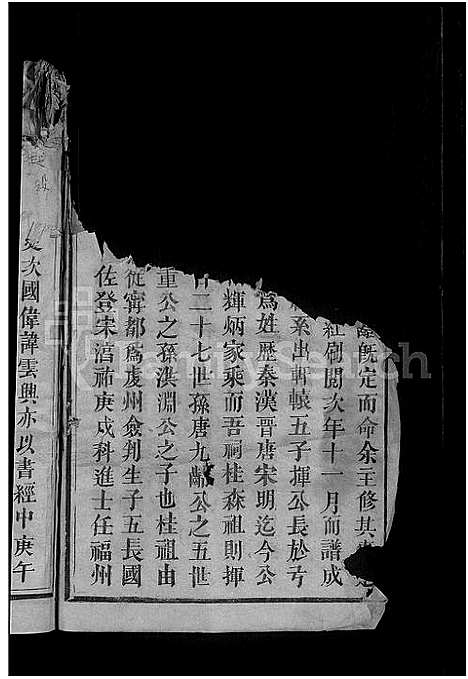 既定而命余主修其
紅刷閱次年十一月而譜成
系出軒轅五子揮公長於弓
爲姓歷秦漢晉唐宋明迄今公
輝炳家乘而吾祠桂森祖則揮
二十七世孫唐九齡公之五世
重公之孫淇淵公之子也桂祖由
從甯都爲虔州僉判生子五長國
佐登宋淳祐庚戌科進士任福州
次國偉諱雲興亦以書經中庚午